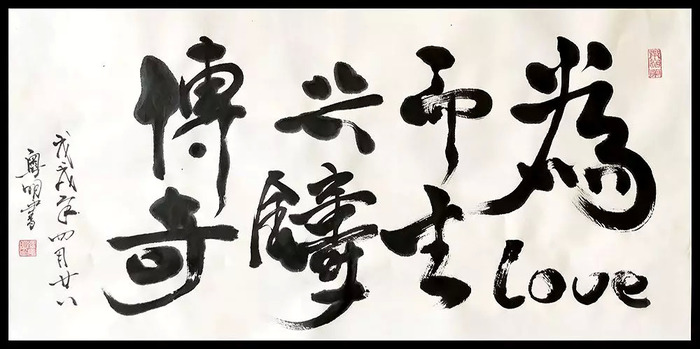 為love
而生
共鑄
傳奇
戊戌年四月廿八
粵明書